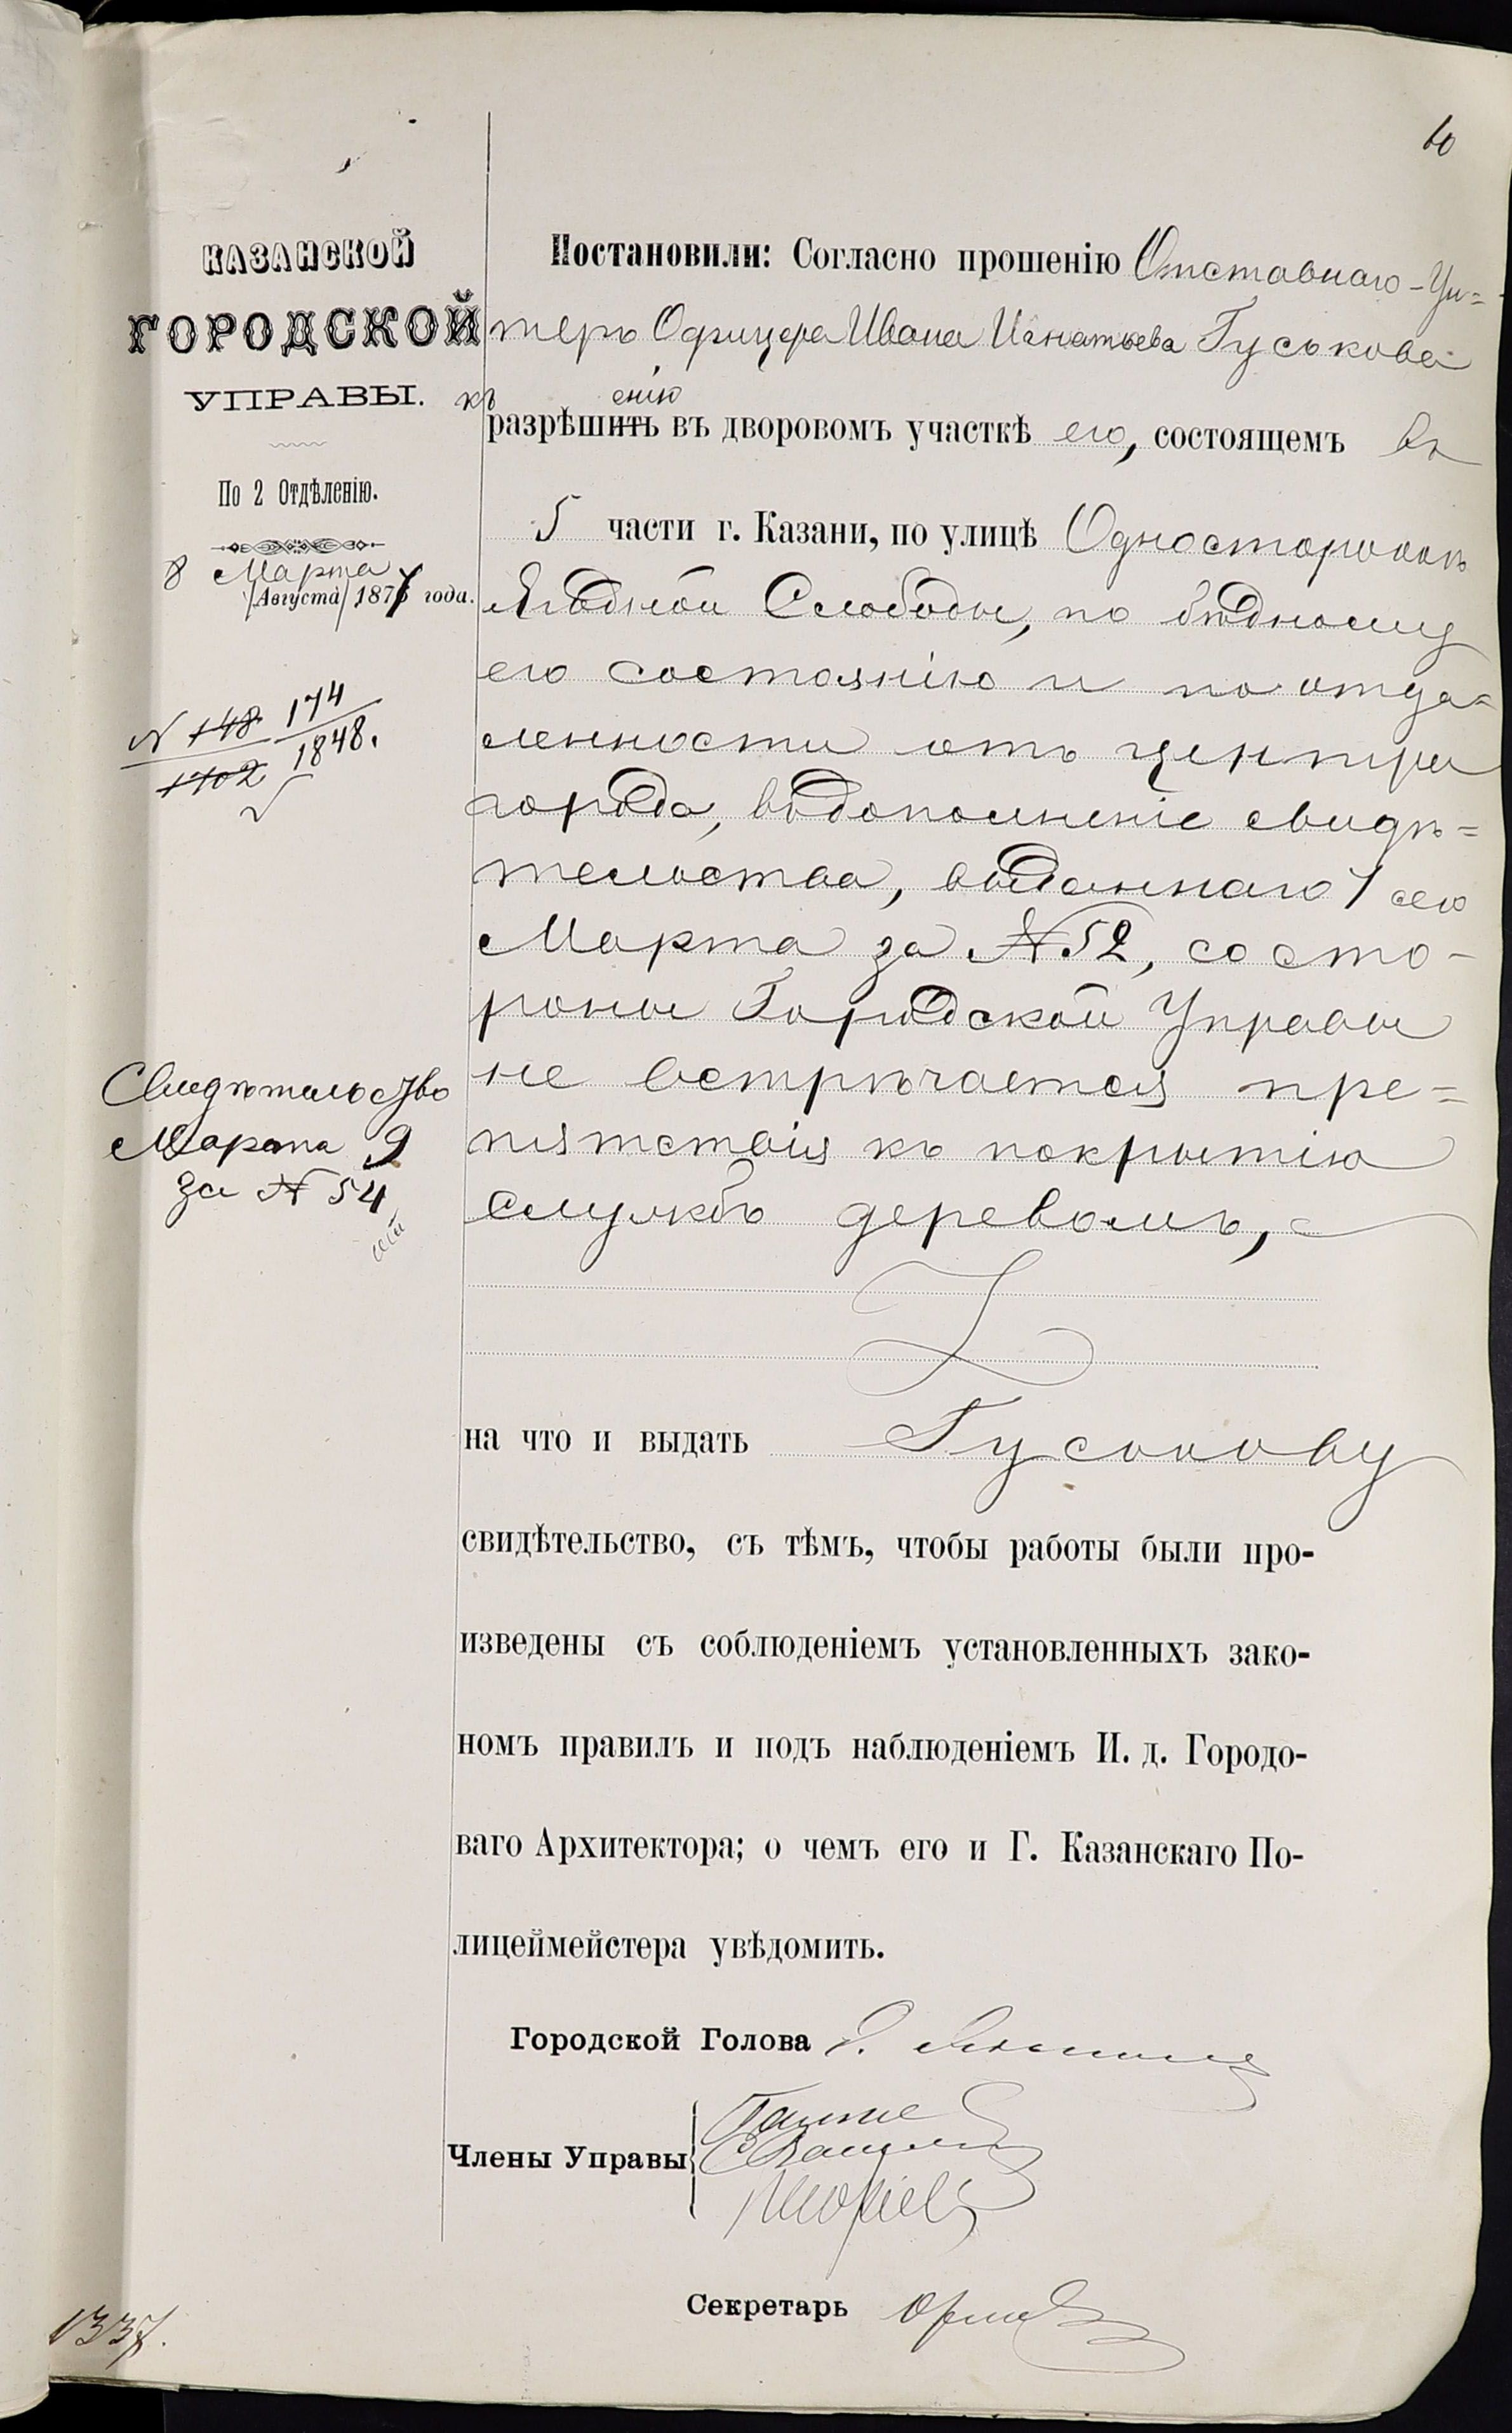 10
КАЗАНСКОЙ
ГОРОДСКОЙ
УПРАВЫ.
По 2 Отдѣленію.
8 Марта
/Августа/ 1877 года.
N 148 174
1102 1848.
Свидѣтельство
Марта 9
за N 54
Постановили: Согласно прошенію Отставнаго-Ун=
теръ Офицера Ивана Игнатьева Гуськова
къ енію
разрѣшить въ дворовомъ участкѣ его, состоящемъ въ
5 части г. Казани, по улицѣ Односторонкѣ
Ягодной Слободы, по бѣдному
его состоянію и по отда=
ленности отъ центра
города, въ дополненіе свидѣ=
тельства, выданнаго 1 сего
Марта за N 52, со сто-
роны Городской Управы
не встрѣчается пре=
пятствія къ покрытію
службъ деревомъ,
на что и выдать Гуськову
свидѣтельство, съ тѣмъ, чтобы работы были про-
изведены съ соблюденіемъ установленныхъ зако-
номъ правилъ и подъ наблюденіемъ И. д. Городо-
ваго Архитектора; о чемъ его и Г. Казанскаго По-
лицеймейстера увѣдомить.
Городской Голова
Члены Управы
Секретарь
1337.